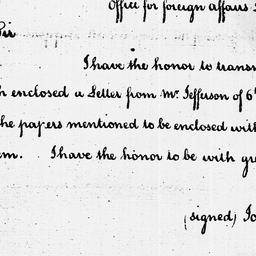 Office for foreign affairs
Sir
I have the honor to transm
h enclosed a Letter from Mr. Jefferson of 6th
the papers mentioned to be enclosed with
em. I have the honor to be with gre
(signed) Jo